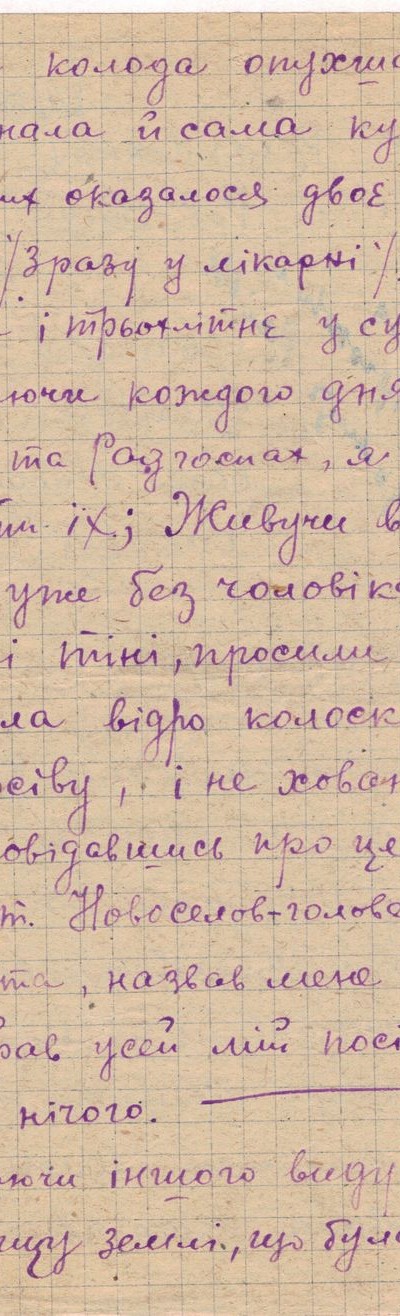 колода опухша
нала й сама ку
их оказалося двоє
/Зразу у лікарні/
і трьохлітнє у су
ючи кождого дня
та Радгоспах, я
їх; Живучи в
уже без чоловіка
і тіні, просили
ла відро колоск
осіву, і не хован
овідавшись про це
т. Новоселов-голова
та, назвав мене
рав усей мій посі
нічого.
ючи іншого виду
ицу землі, що була